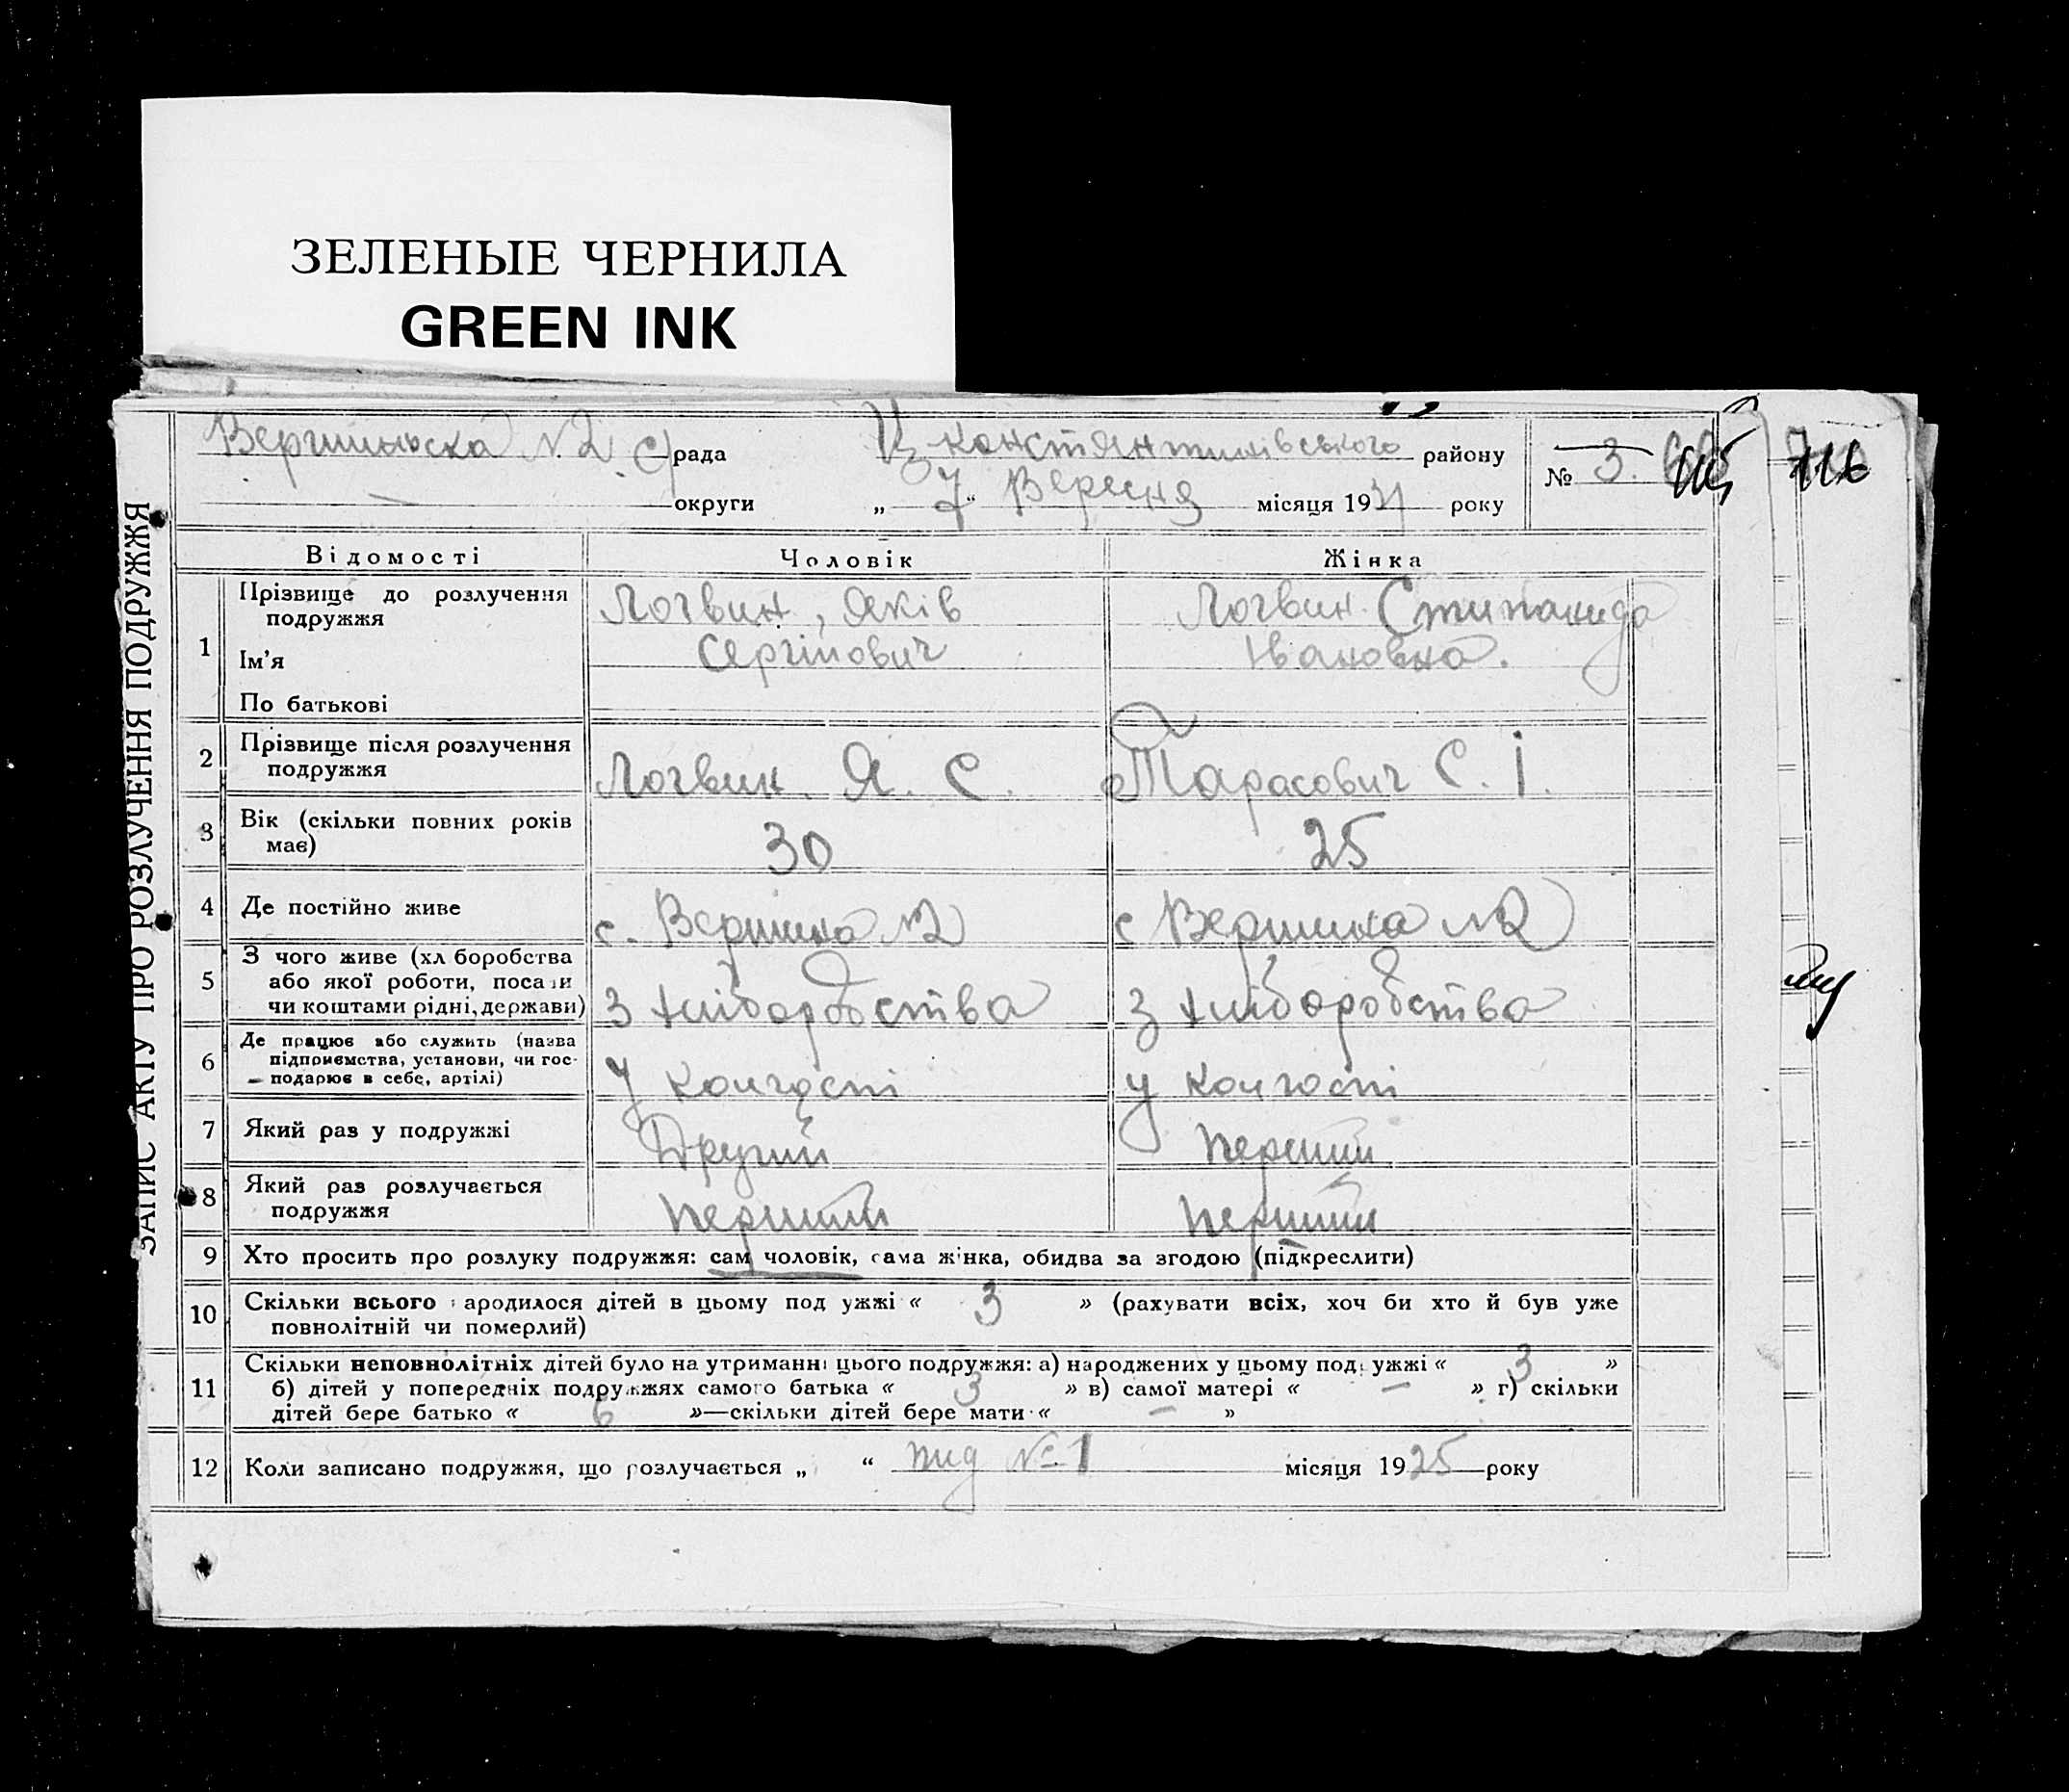 ЗЕЛЕНЫЕ ЧЕРНИЛА
GREEN INK
Вершинська №2 с/рада
Костянтинівського району
№ 3.
716
округи
„ 7 " Вересня місяця 1931 року
ЗАПИС АКТУ ПРО РОЗЛУЧЕННЯ ПОДРУЖЖЯ
Відомості Чоловік Жінка
1 Прізвище до розлучення подружжя
Ім'я
По батькові
Логвин, Яків
Сергійович
Логвин Стипанида
Івановна.
2 Прізвище після розлучення
подружжя
Логвин. Я. С.
Тарасович С. І.
3 Вік (скільки повних років
має)
30
25
4 Де постійно живе
с. Вершина №2
с Вершина №2
5 З чого живе (хліборобства
або якої роботи, посади
чи коштами рідні, держави)
З хліборобства
З хліборобства
6 Де працює або служить (назва
підприємства, установи, чи гос-
подарює в себе, артілі)
У колгоспі
У колгоспі
7 Який раз у подружжі
Другий
перший
8 Який раз розлучається
подружжя
перший
перший
9 Хто просить про розлуку подружжя: сам чоловік, сама жінка, обидва за згодою (підкреслити)
10 Скільки всього народилося дітей в цьому подружжі « 3 » (рахувати всіх, хоч би хто й був уже
повнолітній чи померлий)
11 Скільки неповнолітніх дітей було на утриманні цього подружжя: а) народжених у цьому подружжі « 3 »
б) дітей у попередніх подружжях самого батька « 3 » в) самої матері « — » г) скільки
дітей бере батько « 6 »—скільки дітей бере мати « — »
12 Коли записано подружжя, що розлучається „ “ пид № 1 місяця 1925 року